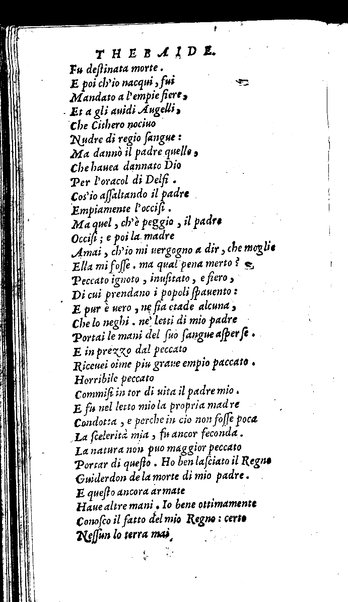 THEBAIDE.
Fu destinata morte.
E poi ch'io nacqui, fui
Mandato a l'empie fiere,
Et a gli auidi Augelli,
Che Cithero nociuo
Nudre di regio sangue:
Ma dannò il padre quello,
Che hauea dannato Dio
Per l'oracol di Delfi.
Cos'io assaltando il padre
Empiamente l'occisi.
Ma quel, ch'è peggio, il padre
Occisi; e poi la madre
Amai, ch'io mi uergogno a dir, che moglie
Ella mi fosse. ma qual pena merto?
Peccato ignoto, inusitato, e fiero,
Di cui prendano i popoli spauento:
E pur è uero, ne fia etade alcuna,
Che lo neghi. ne' letti di mio padre
Portai le mani del suo sangue asperse.
E in prezzo dal peccato
Riceuei oime piu graue empio paccato.
Horribile peccato
Commisi in tor di uita il padre mio.
E fu nel letto mio la propria madre
Condotta, e perche in cio non fosse poca
La scelerità mia, fu ancor feconda.
La natura non puo maggior peccato
Portar di questo. Ho ben lasciato il Regno
Guiderdon de la morte di mio padre.
E questo ancora armate
Haue altre mani. Io bene ottimamente
Conosco il fatto del mio Regno: certo
Nessun lo terra mai